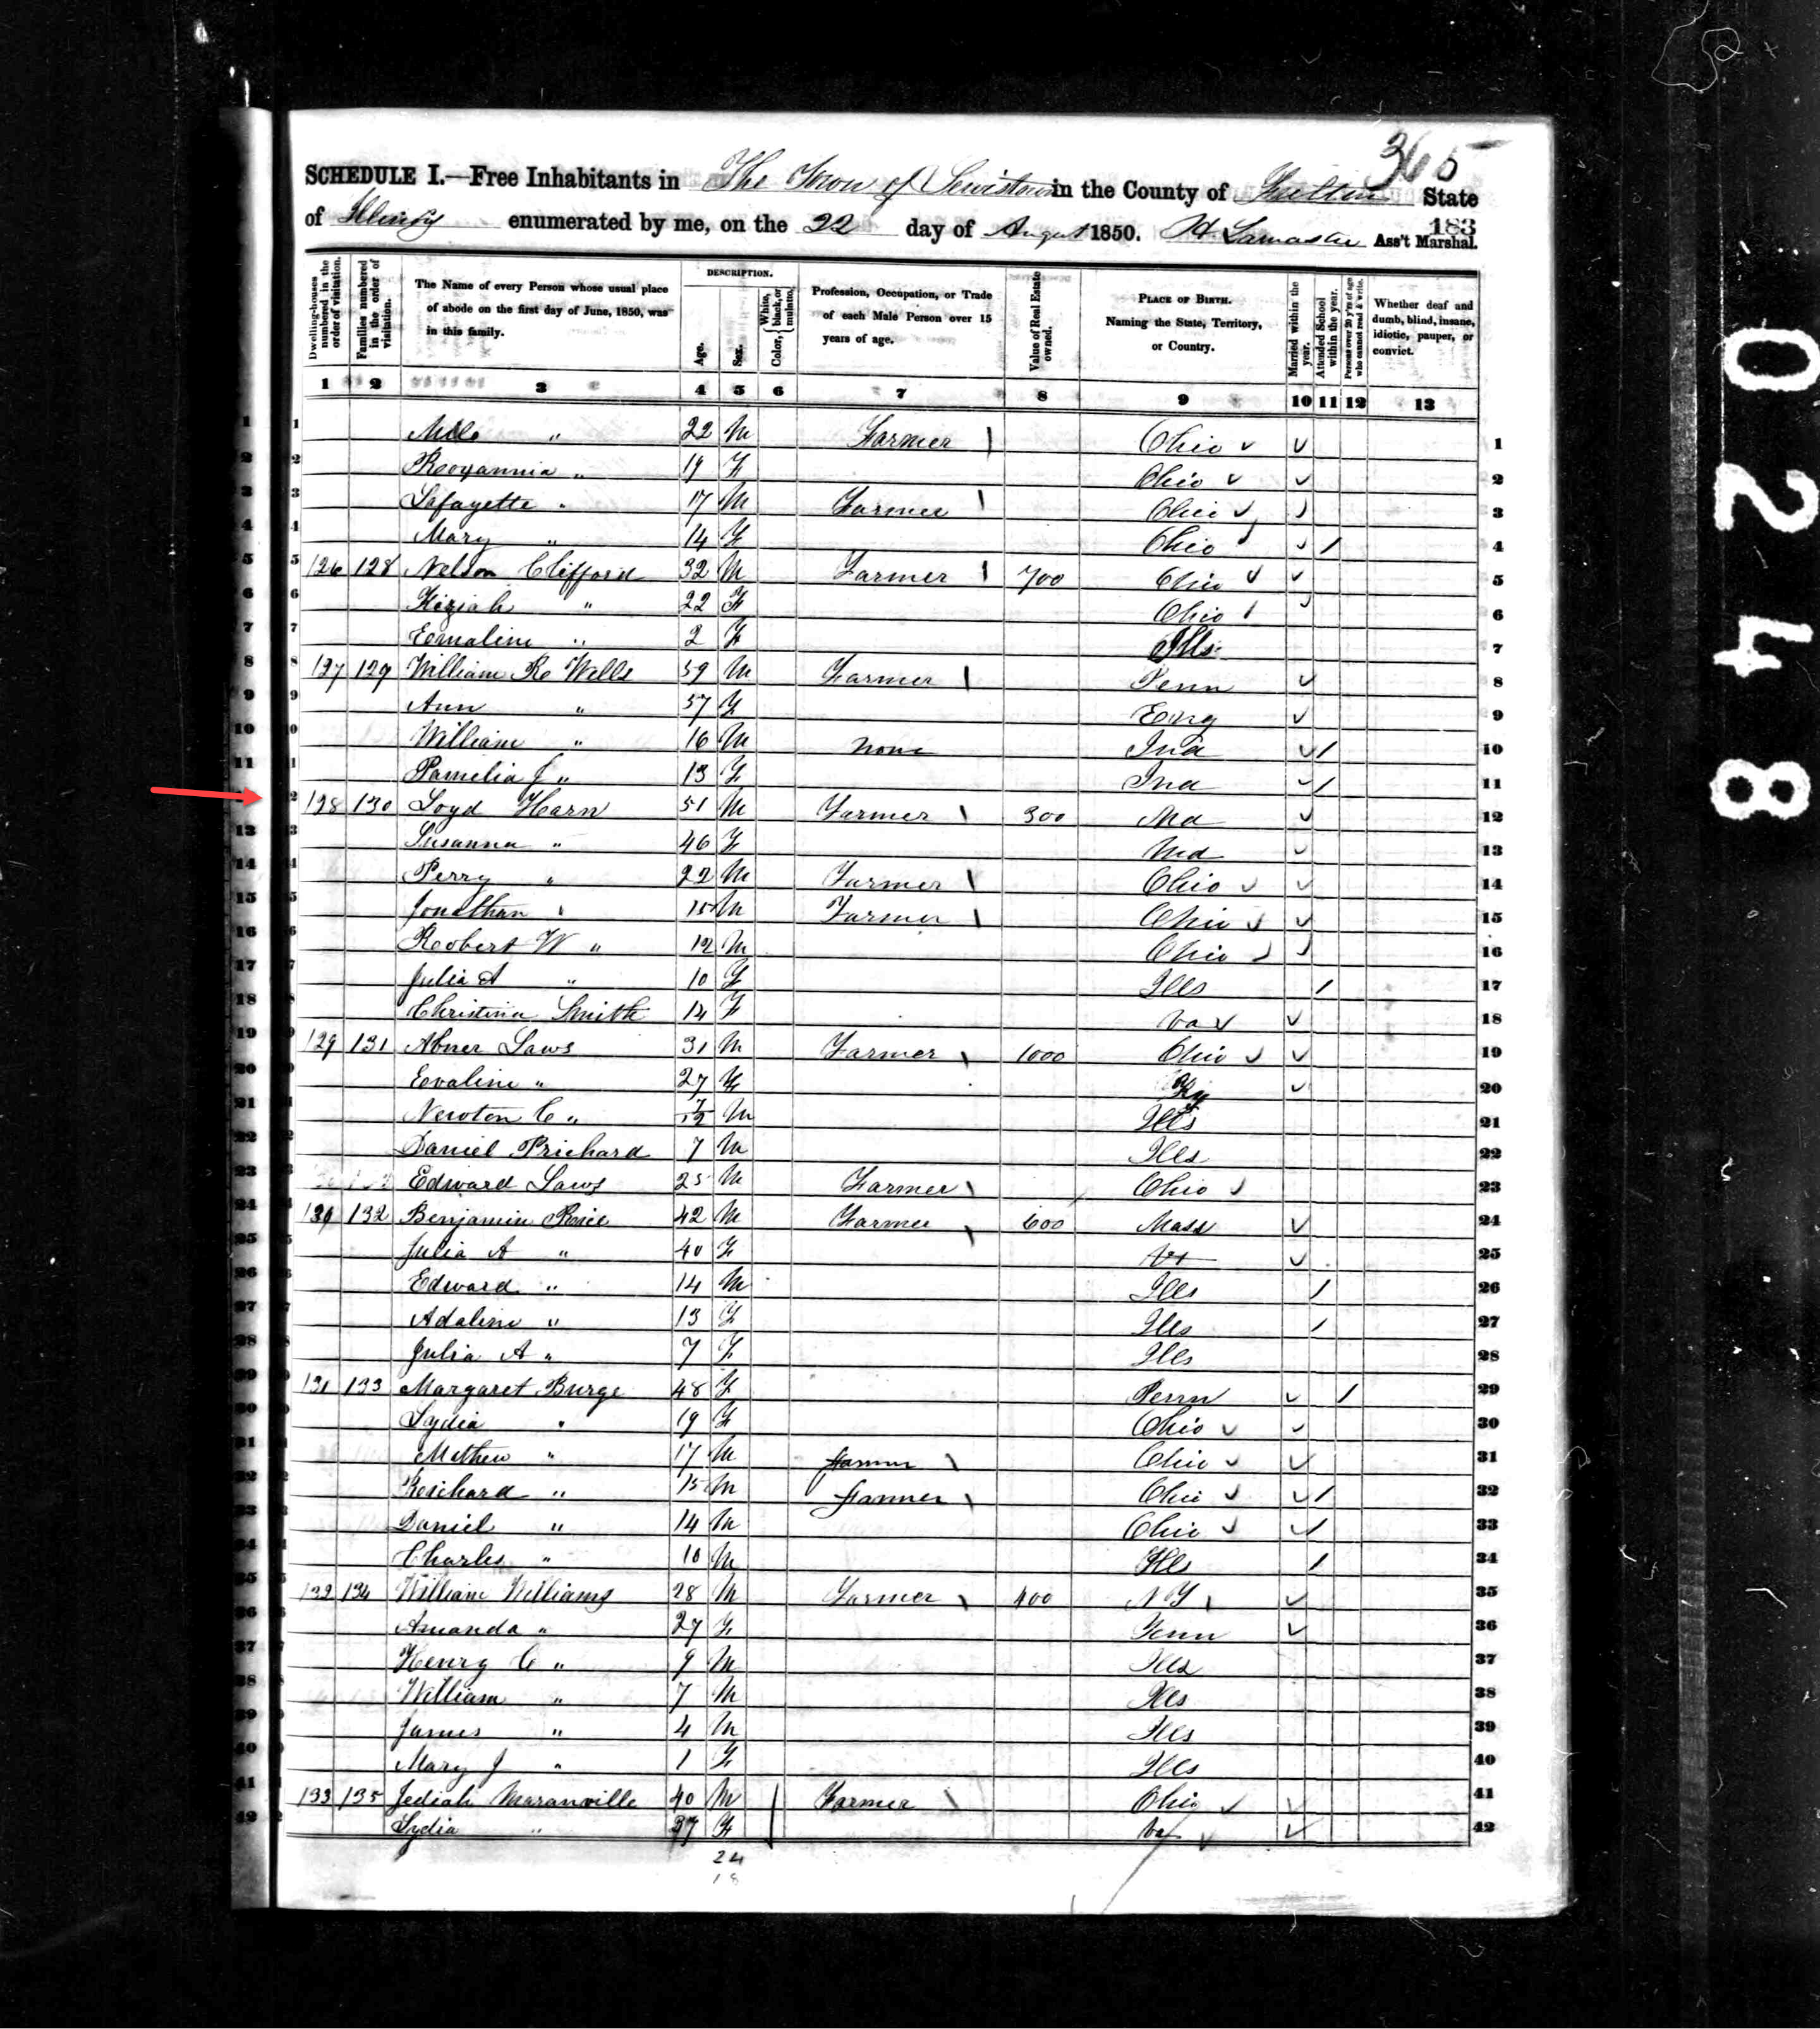 365
SCHEDULE I.—Free Inhabitants in The Town of Lewistown in the County of Fulton State
of Illinois enumerated by me, on the 22 day of August 1850. Ass't Marshal.
183
Dwelling-houses numbered in the order of visitation.
Families numbered in the order of visitation.
The Name of every Person whose usual place of abode on the first day of June, 1850, was in this family.
DESCRIPTION.
Age.
Sex.
Color, { White, black, or mulatto.
Profession, Occupation, or Trade of each Male Person over 15 years of age.
Value of Real Estate owned.
PLACE OF BIRTH. Naming the State, Territory, or Country.
Married within the year.
Attended School within the year.
Persons over 20 y'rs of age who cannot read & write.
Whether deaf and dumb, blind, insane, idiotic, pauper, or convict.
1 2 3 4 5 6 7 8 9 10 11 12 13
1 Milo " 22 M Farmer Ohio 1
2 " 19 F Ohio 2
3 Lafayette " 17 M Farmer Ohio 3
4 Mary " 14 F Ohio 4
5 126 128 Nelson Clifford 32 M Farmer 700 Ohio 5
6 Kiziah " 22 F Ohio 6
7 Emaline " 2 F Ills 7
8 127 129 William R Wells 59 M Farmer Penn 8
9 Ann " 57 F Eng 9
10 William " 16 M None Ind 10
11 Pamelia J " 13 F Ind 11
128 130 Loyd Harn 51 M Farmer 300 Md 12
13 Susanna " 46 F Md 13
14 Perry " 22 M Farmer Ohio 14
15 Jonathan " 15 M Farmer Ohio 15
16 Robert W " 12 M Ohio 16
17 Julia A " 10 F Ills 17
18 Christina Smith 14 F Va 18
19 129 131 Abner Laws 31 M Farmer 1000 Ohio 19
20 Evaline " 27 F Ky 20
21 Newton C " 7/12 M Ills 21
22 Daniel Prichard 7 M Ills 22
23 Edward Laws 25 M Farmer Ohio 23
24 130 132 Benjamin 42 M Farmer 600 Mass 24
25 Julia A " 40 F Vt 25
26 Edward " 14 M Ills 26
27 Adaline " 13 F Ills 27
28 Julia A " 7 F Ills 28
29 131 133 Margaret Burge 48 F Penn 29
30 Lydia " 19 F Ohio 30
31 Mathew " 17 M Farmer Ohio 31
32 Richard " 15 M Farmer Ohio 32
33 Daniel " 14 M Ohio 33
34 Charles " 10 M Ills 34
35 132 134 William Williams 28 M Farmer 400 N Y 35
36 Amanda " 27 F 36
37 Henry C " 9 M Ills 37
38 William " 7 M Ills 38
39 James " 4 M Ills 39
40 Mary J " 1 F Ills 40
41 133 135 Jediah Maranville 40 M Farmer Ohio 41
42 Lydia " 37 F Va 42
24
18
0248